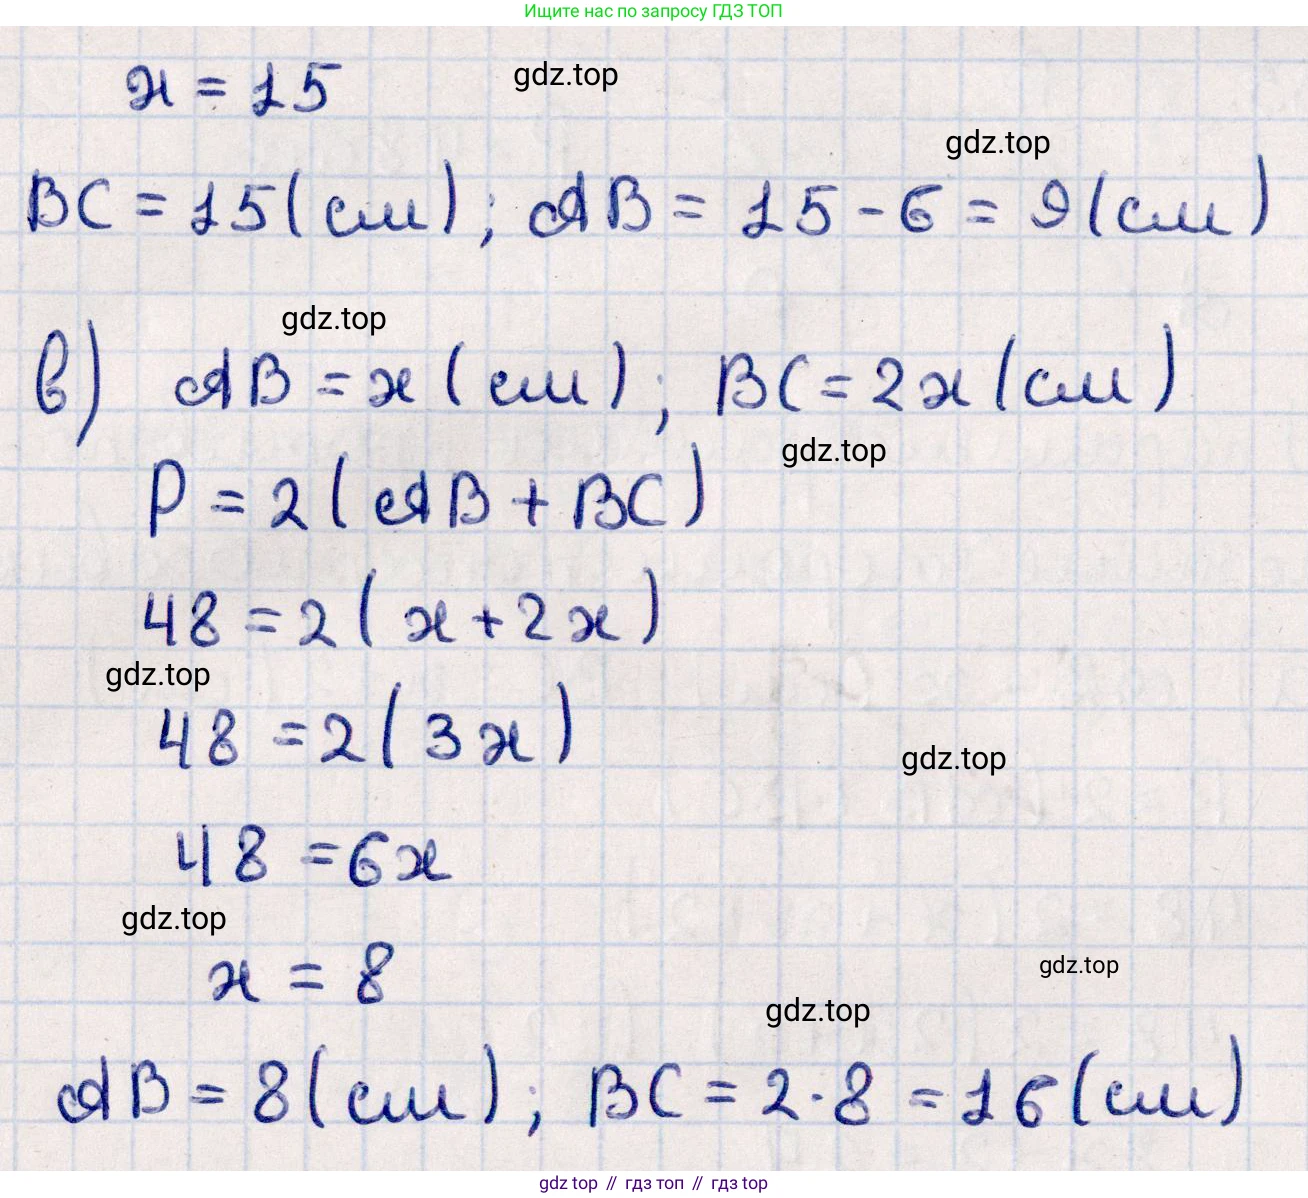 Ищите нас по запросу ГДЗ ТОП
x = 15
gdz.top
gdz.top
BC = 15 (см); AB = 15 - 6 = 9 (см)
gdz.top
в) AB = x (см); BC = 2x (см)
gdz.top
P = 2 (AB + BC)
48 = 2 (x + 2x)
gdz.top
48 = 2 (3x)
gdz.top
48 = 6x
gdz.top
x = 8
gdz.top
gdz.top
AB = 8 (см); BC = 2 · 8 = 16 (см)
gdz top // гдз топ // гдз top